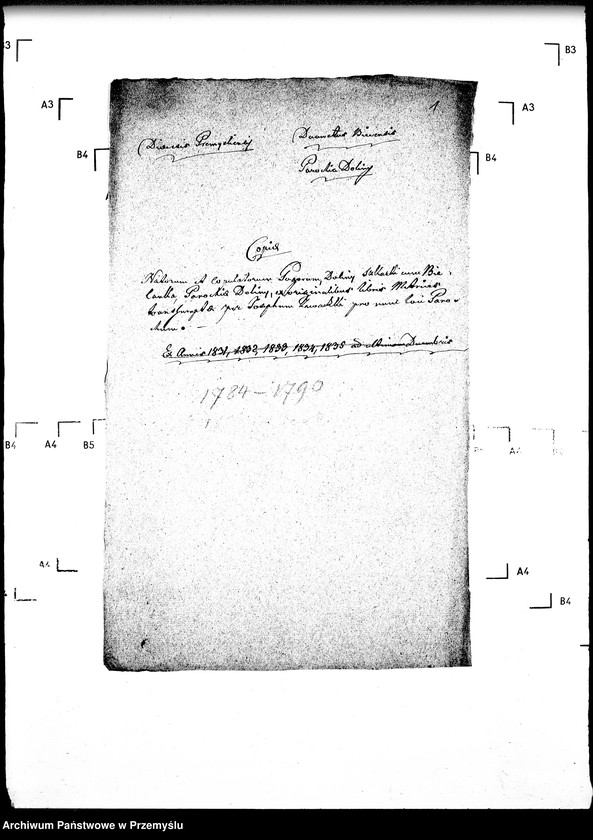 1
Diœcesis Premysliensis
Decanatus Biecensis
Parochia Doliny
Copia
Natorum et Copulatorum Doliny cum Bie-
lanka Parochia Doliny, ex originalibus libris Metrices
per Josephum pro nunc loci Paro-
chum.
Ex Annis 1831, 1832, 1833, 1834, 1835 ad ultimam Decembris
1784-1790
B3
B3
A3
A3
B4
B4
B4
A4
B5
A4
A4
A4
B4
Archiwum Państwowe w Przemyślu